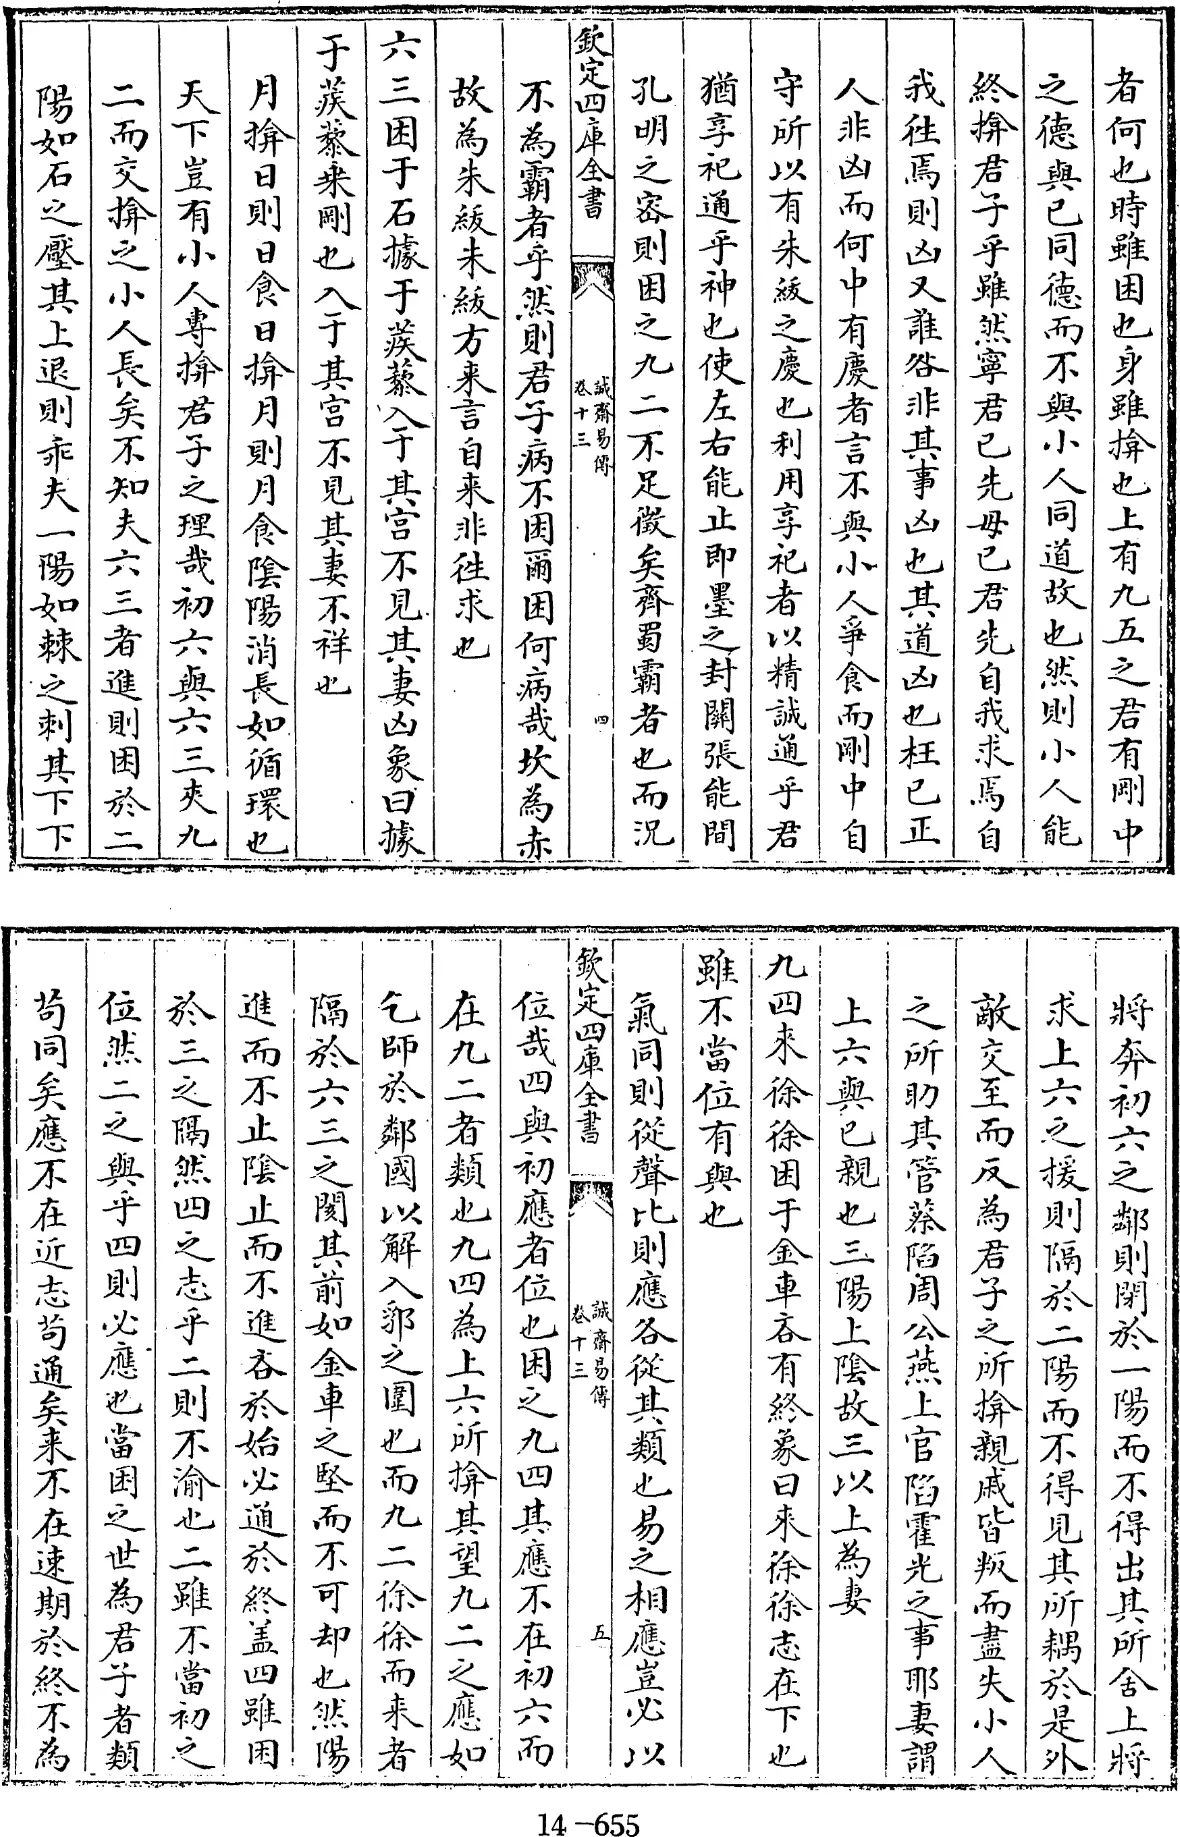 者何也時雖困也身雖揜也上有九五之君有剛中
之德與已同德而不與小人同道故也然則小人能
終揜君子乎雖然寧君已先毋已君先自我求焉自
我徃焉則凶又誰咎非其事凶也其道凶也枉已正
人非凶而何中有慶者言不與小人爭食而剛中自
守所以有朱紱之慶也利用享祀者以精誠通乎君
猶享祀通乎神也使左右能止即墨之封關張能間
孔明之宻則困之九二不足徵矣齊蜀霸者也而况
欽定四庫全書
誠齋易傳
卷十三
四
不為霸者乎然則君子病不困爾困何病哉坎為赤
故為朱紱朱紱方来言自来非徃求也
六三困于石據于蒺藜入于其宫不見其妻凶象曰據
于蒺藜乗剛也入于其宫不見其妻不祥也
月揜日則日食日揜月則月食陰陽消長如循環也
天下豈有小人專揜君子之理哉初六與六三夾九
二而交揜之小人長矣不知夫六三者進則困於二
陽如石之壓其上退則乖夫一陽如棘之刺其下下
將奔初六之鄰則閉於一陽而不得出其所舍上將
求上六之援則隔於二陽而不得見其所耦於是外
敵交至而反為君子之所揜親戚皆叛而盡失小人
之所助其管蔡陷周公燕上官陷霍光之事耶妻謂
上六與已親也三陽上陰故三以上為妻
九四來徐徐困于金車吝有終象曰來徐徐志在下也
雖不當位有與也
氣同則從聲比則應各從其類也易之相應豈必以
欽定四庫全書
誠齋易傳
卷十三
五
位哉四與初應者位也困之九四其應不在初六而
在九二者類也九四為上六所揜其望九二之應如
乞師於鄰國以解入郛之圍也而九二徐徐而来者
隔於六三之閡其前如金車之堅而不可却也然陽
進而不止陰止而不進吝於始必通於終盖四雖困
於三之隔然四之志乎二則不渝也二雖不當初之
位然二之與乎四則必應也當困之世為君子者類
茍同矣應不在近志茍通矣来不在速期於終不為
14-655